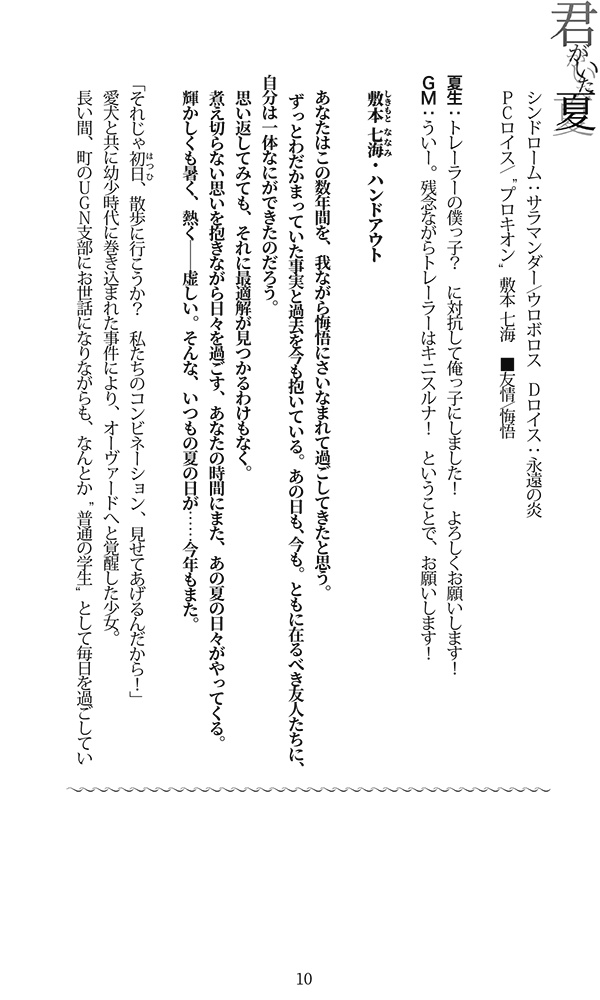 君がいた夏
シンドローム：サラマンダー／ウロボロス　Dロイス：永遠の炎
PCロイス／〝プロキオン〟敷本 七海　■友情／悔悟
夏生：トレーラーの僕っ子？　に対抗して俺っ子にしました！　よろしくお願いします！
GM：ういー。残念ながらトレーラーはキニスルナ！　ということで、お願いします！
敷本 七海・ハンドアウト
しきもと ななみ
あなたはこの数年間を、我ながら悔悟にさいなまれて過ごしてきたと思う。
ずっとわだかまっていた事実と過去を今も抱いている。あの日も、今も。ともに在るべき友人たちに、
自分は一体なにができたのだろう。
思い返してみても、それに最適解が見つかるわけもなく。
煮え切らない思いを抱きながら日々を過ごす、あなたの時間にまた、あの夏の日々がやってくる。
輝かしくも暑く、熱く――虚しい。そんな、いつもの夏の日が……今年もまた。
「それじゃ初日、散歩に行こうか？　私たちのコンビネーション、見せてあげるんだから！」
はつひ
愛犬と共に幼少時代に巻き込まれた事件により、オーヴァードへと覚醒した少女。
長い間、町のUGN支部にお世話になりながらも、なんとか〝普通の学生〟として毎日を過ごしてい
10